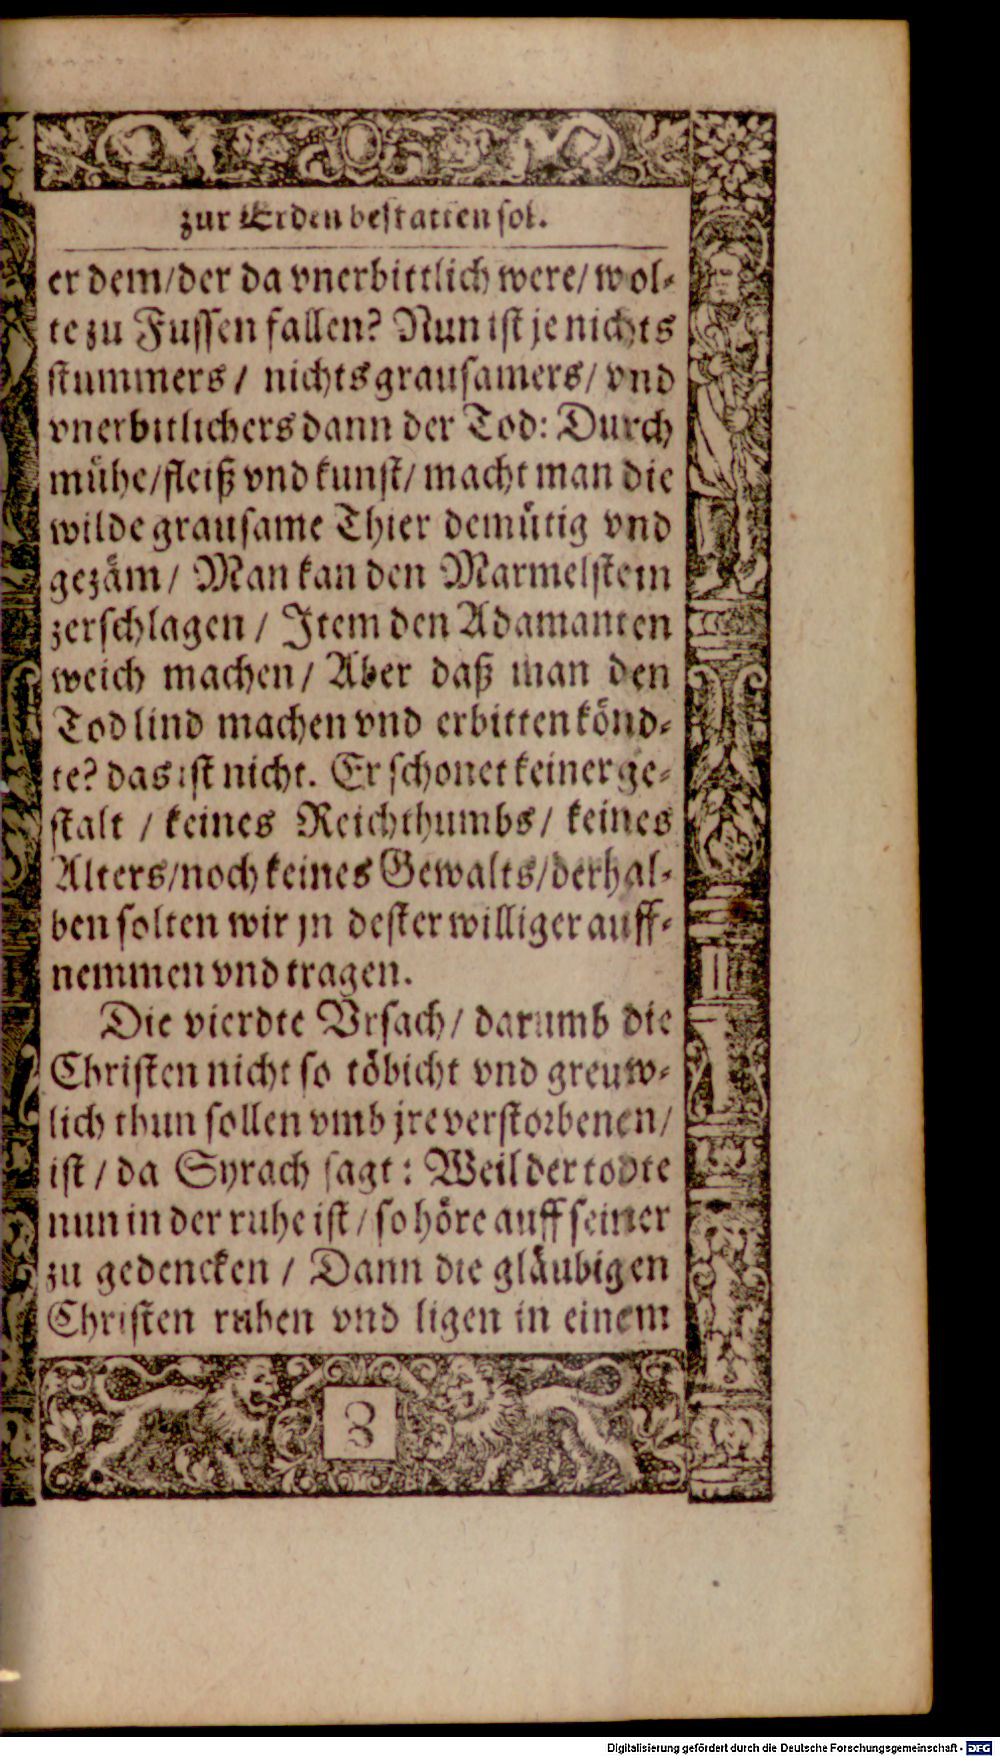 zur Erden bestatten sol.
er dem/der da vnerbittlich were/ wol-
te zu Fussen fallen? Nun ist je nichts
stummers / nichts grausamers/ vnd
vnerbitlichers dann der Tod: Durch
mühe/fleiß vnd kunst/ macht man die
wilde grausame Thier demütig vnd
gezäm/ Man kan den Marmelstein
zerschlagen / Item den Adamanten
weich machen/ Aber daß man den
Tod lind machen vnd erbitten könd-
te? das ist nicht. Er schonet keiner ge-
stalt / keines Reichthumbs/ keines
Alters/noch keines Gewalts/derhal-
ben solten wir jn dester williger auff-
nemmen vnd tragen.
Die vierdte Vrsach/ darumb die
Christen nicht so töbicht vnd greuw-
lich thun sollen vmb jre verstorbenen/
ist / da Syrach sagt: Weil der todte
nun in der ruhe ist / so höre auff seiner
zu gedencken / Dann die gläubigen
Christen ruhen vnd ligen in einem
3
Digitalisierung gefördert durch die Deutsche Forschungsgemeinschaft - DFG